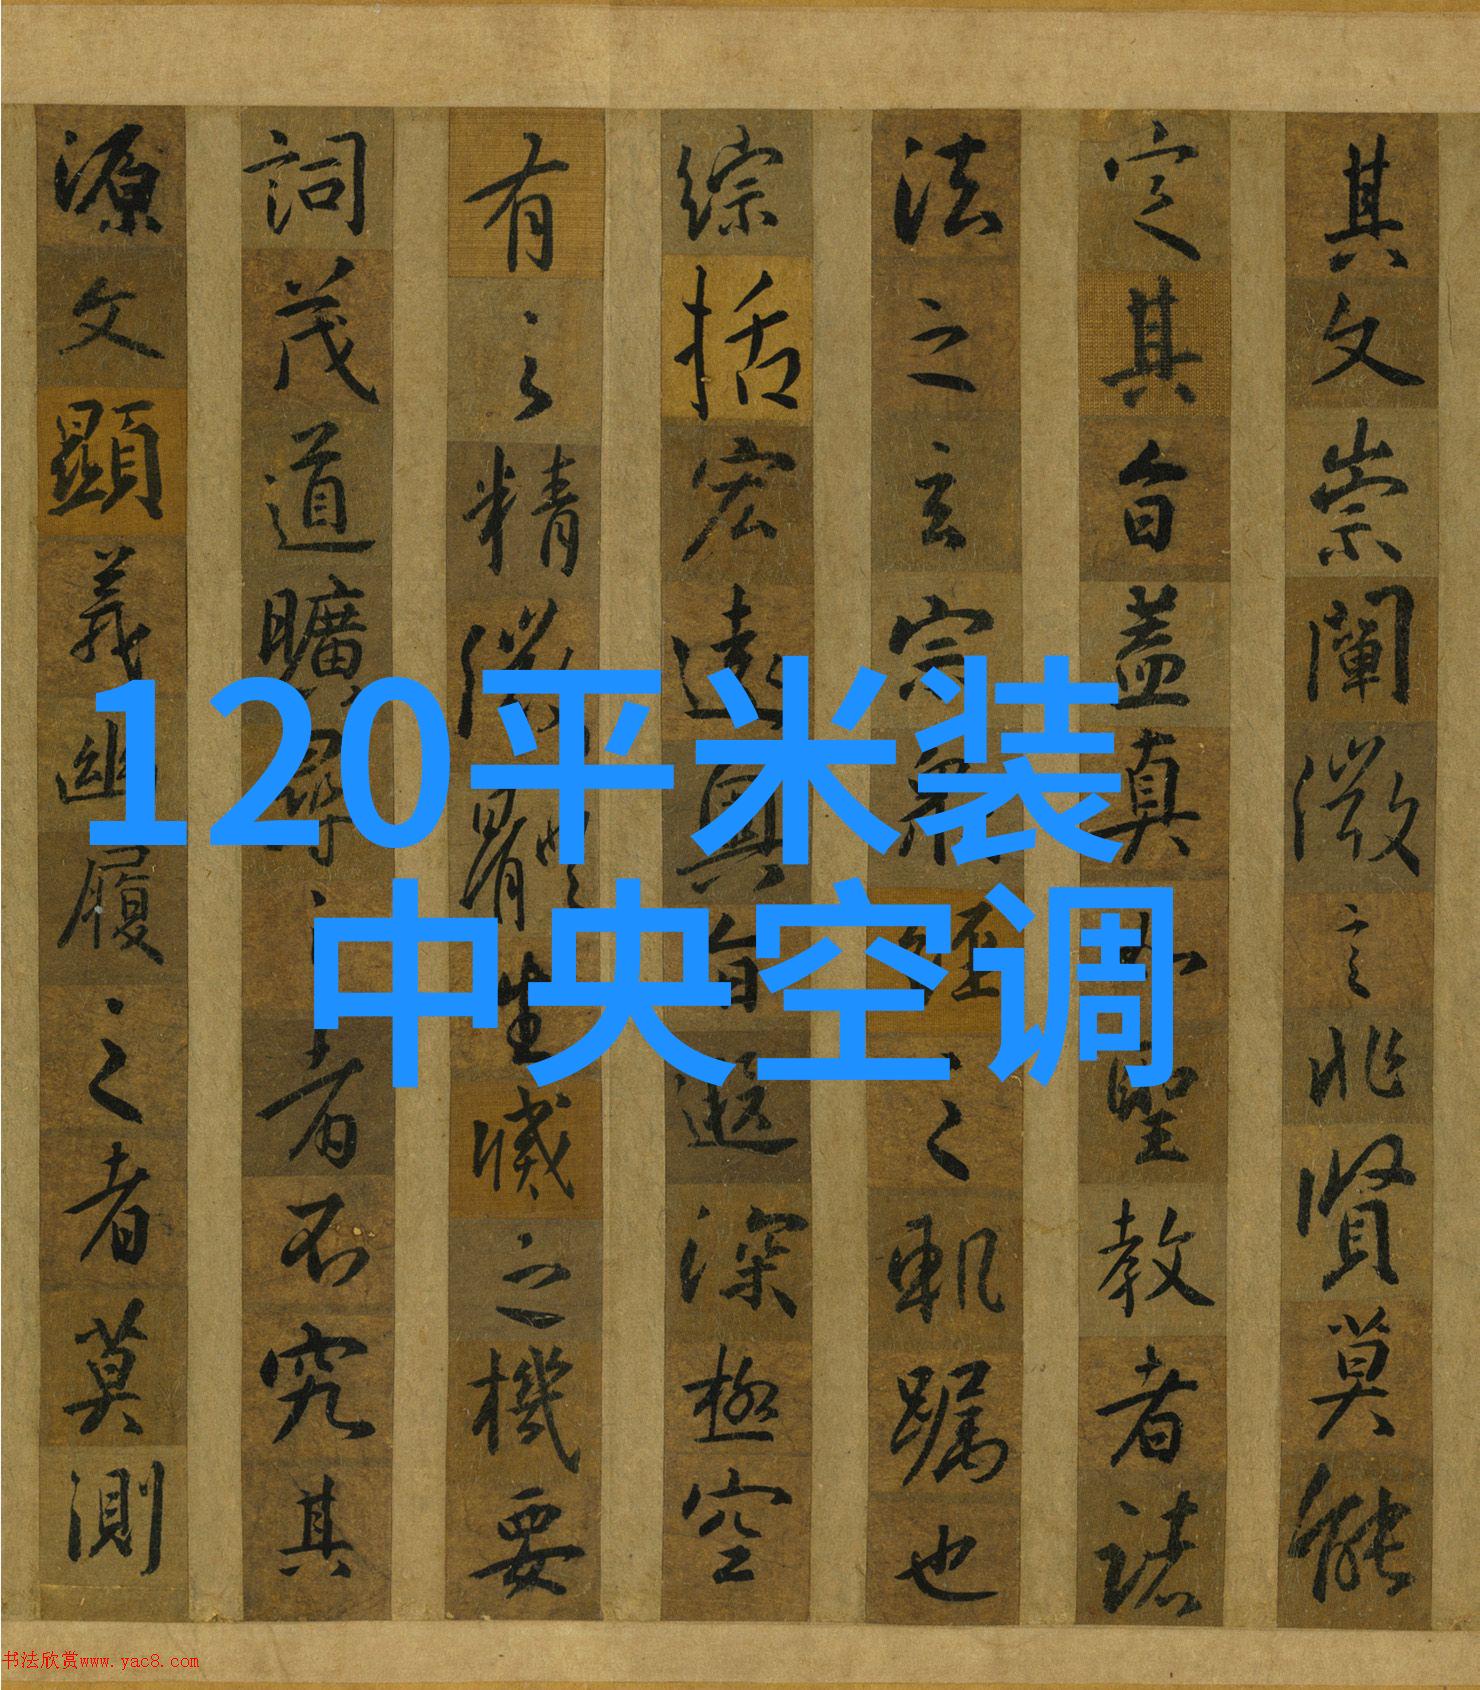 其文崇闡微言非賢莫能
定其旨蓋真如聖教者諸
法之玄宗衆經之軌躅也
綜括宏遠奥旨遐深極空
有之精微體生滅之機要
詞茂道曠尋之者不究其
源文顯義幽履之者莫測
120平米装
中央空调
书法欣赏www.yac8.com